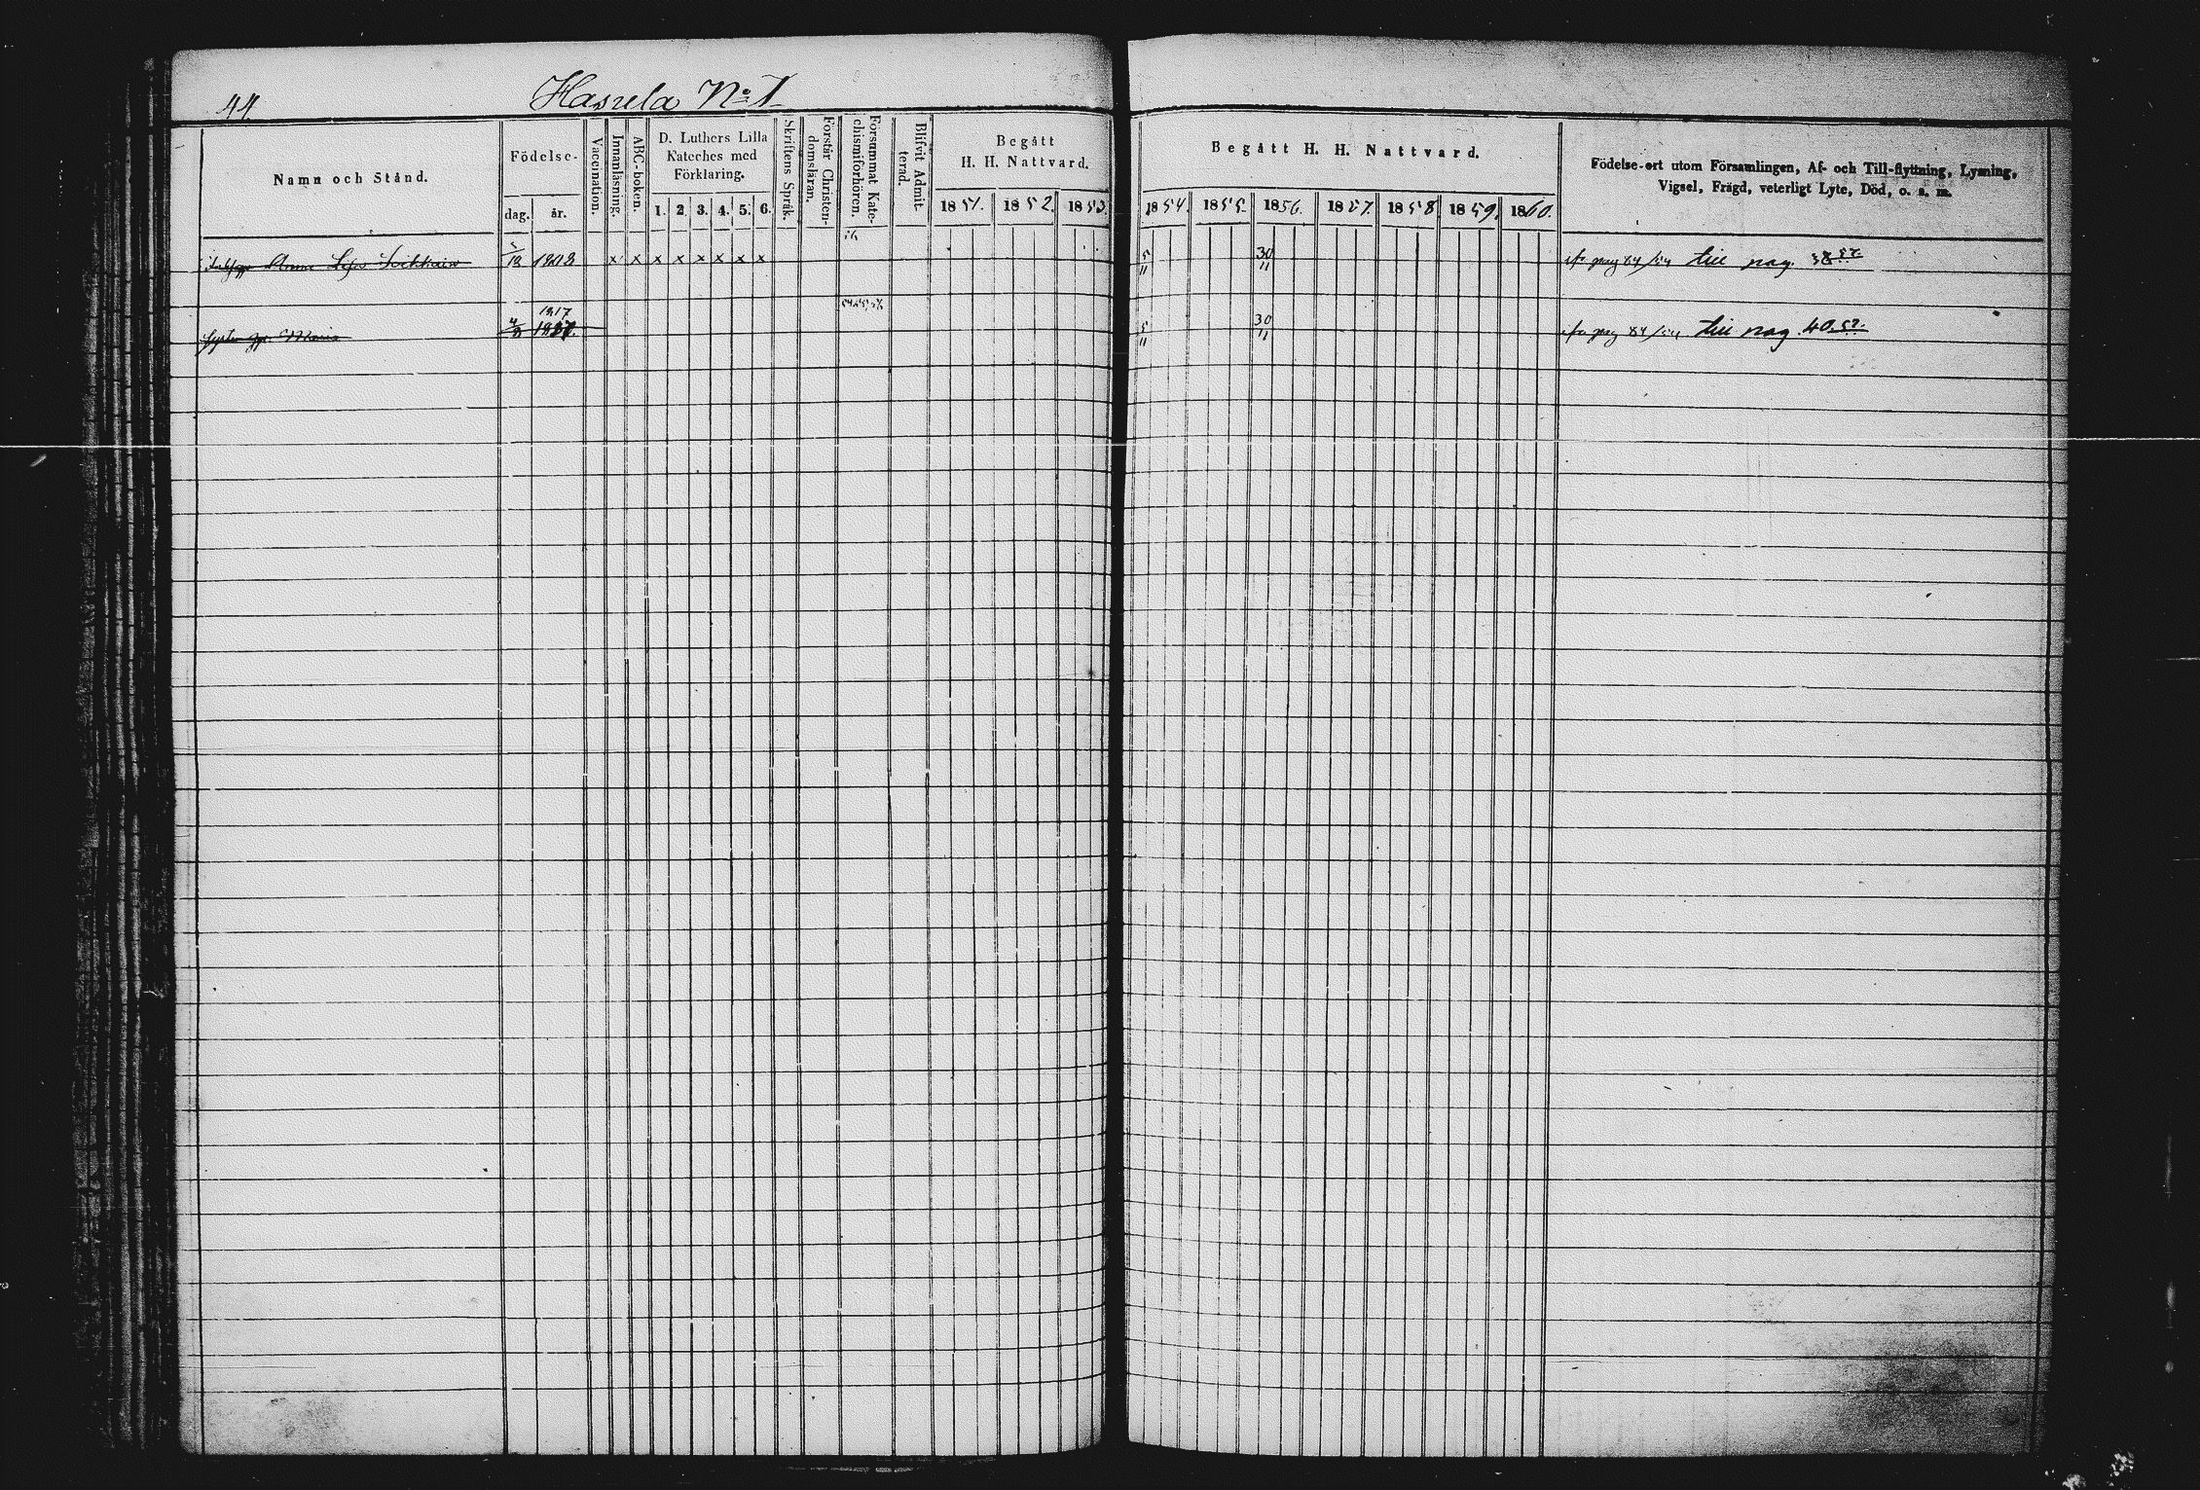 44
Hasula No 1
Namn och Stånd.
Födelse-
dag.
år.
Vaccination.
Innanläsning.
ABC-boken.
D. Luthers Lilla
Kateches med
Förklaring.
1. 2. 3. 4. 5. 6.
Skriftens Språk.
Förstår Christen-
domsläran.
Försummat Kate-
chismiförhören.
Blifvit Admit-
terad.
Begått
H. H. Nattvard.
1851. 1852. 1853.
Begått H. H. Nattvard.
1854. 1855. 1856. 1857. 1858 1859. 1860.
Födelse-ort utom Församlingen, Af- och Till-flyttning, Lysning,
Vigsel, Frägd, veterligt Lyte, Död, o. s. m.
Anna 1803 x x x x x x x x 5/11 30/11 pag 84 till pag. 38 57.
1817
Maria 4/8 5/11 30/11 pag 84 till pag. 40. 57.